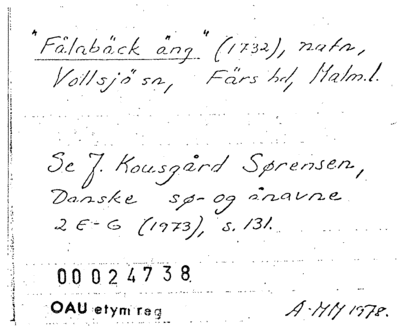 "Fälabäck äng" (1732), natn,
Vollsjö sn, Färs hd, Malm.l.
Se J. Kousgård Sørensen,
Danske sø- og ånavne
2 E-G (1973), s. 131.
00024738
OAU etym reg
A-MM 1978.